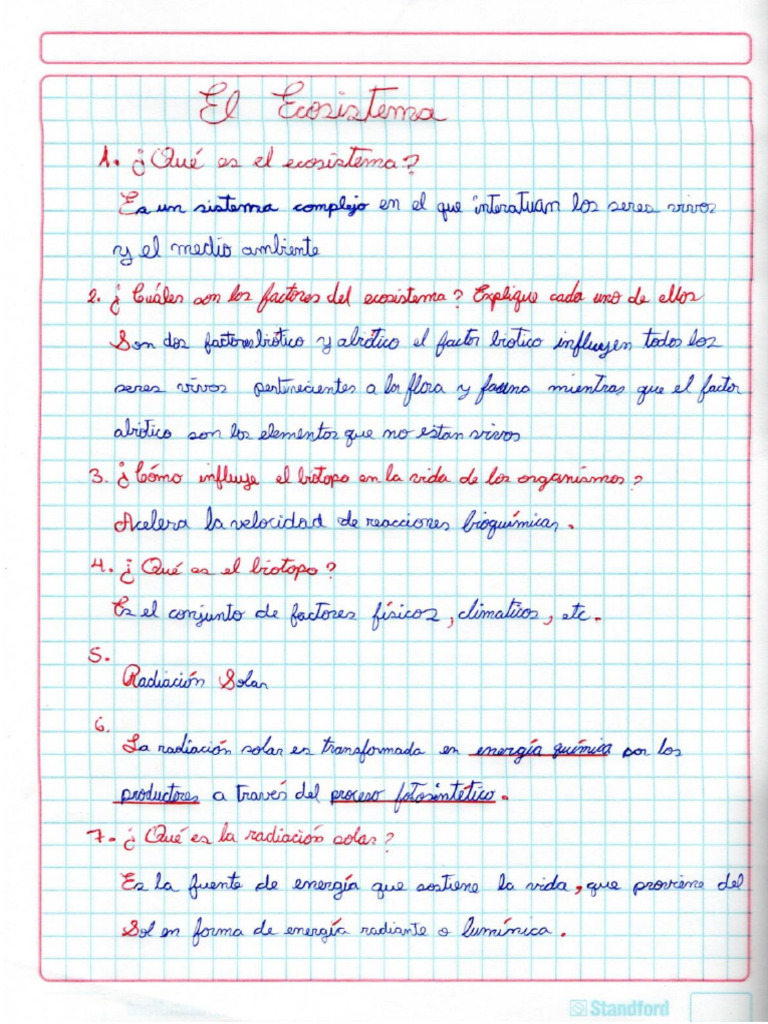 El Ecosistema
1. ¿Qué es el ecosistema?
Es un sistema complejo en el que interatuan los seres vivos
y el medio ambiente
2. ¿Cuáles son los factores del ecosistema? Explique cada uno de ellos
Son dos factores biótico y abiótico el factor biotico influyen todos los
seres vivos pertinecientes a la flora y fauna mientras que el factor
abiótico son los elementos que no estan vivos
3. ¿Cómo influye el biotopo en la vida de los organismos?
Acelera la velocidad de reacciones bioquímicas.
4. ¿Qué es el biotopo?
Es el conjunto de factores físicos, climaticos, etc.
5.
Radiación Solar
6.
La radiación solar es transformada en energía química por los
productores a través del proceso fotosintético.
7. ¿Qué es la radiación solar?
Es la fuente de energía que sostiene la vida, que proviene del
Sol en forma de energía radiante o lumínica.
Standford